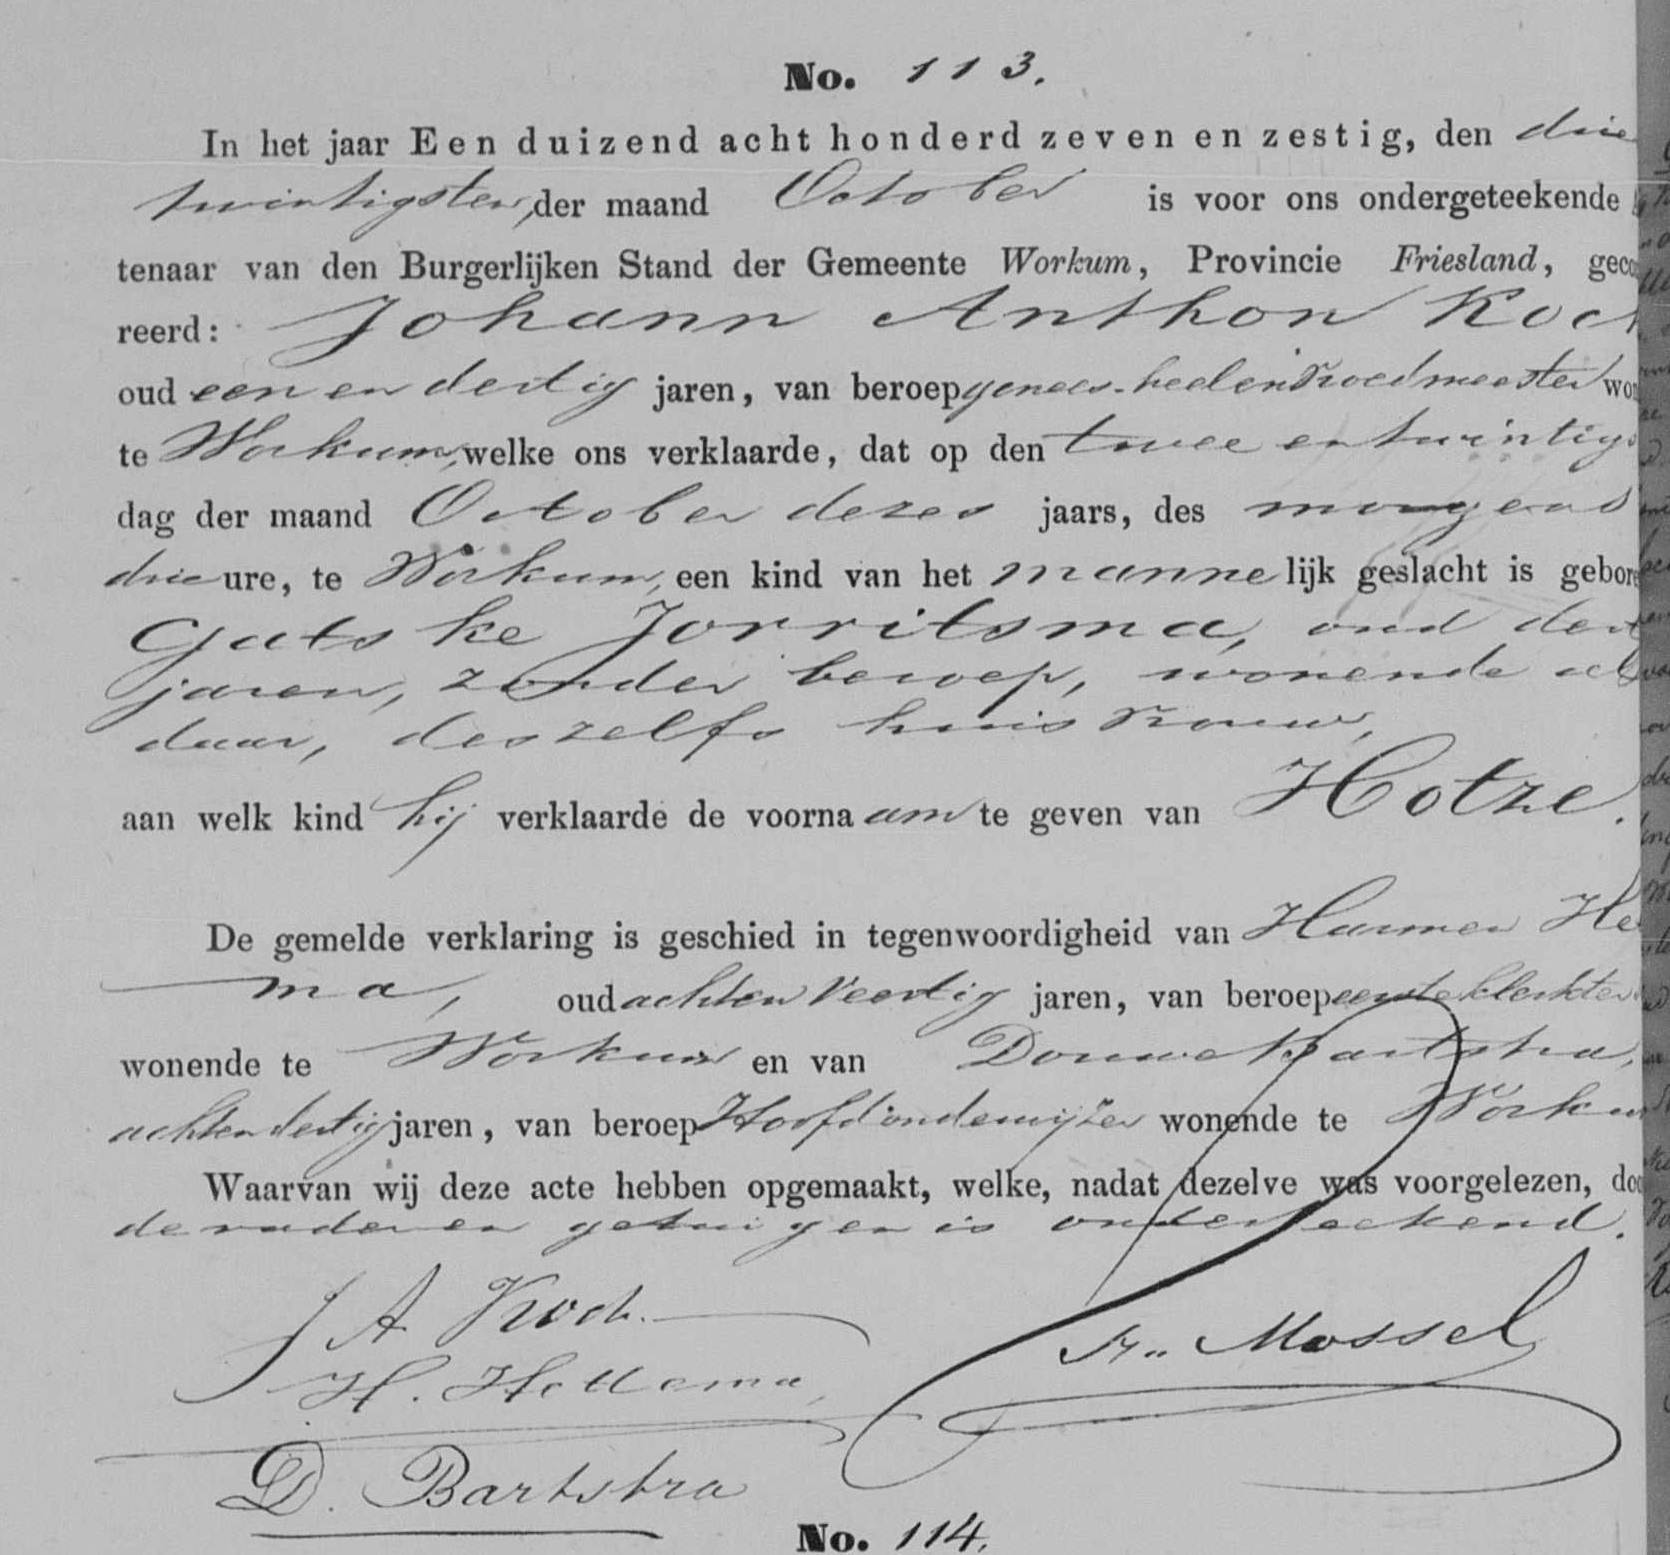 No. 113.
In het jaar Een duizend acht honderd zeven en zestig, den drie
twintigsten, der maand October is voor ons ondergeteekende
tenaar van den Burgerlijken Stand der Gemeente Workum, Provincie Friesland, geco
reerd: Johann Anthon Koch
oud een en dertig jaren, van beroep genees- heel en vroedmeester won
te Workum, welke ons verklaarde, dat op den twee en twintigs
dag der maand October dezes jaars, des morgens
drie ure, te Workum, een kind van het mannelijk geslacht is gebore
Gatske Jorritsma, oud dert
jaren, zonder beroep, wonende al
daar, deszelfs huisvrouw,
aan welk kind hij verklaarde de voornaam te geven van Hotze.
De gemelde verklaring is geschied in tegenwoordigheid van Harmen He
ma, oud acht en veertig jaren, van beroep eerste klerk ter
wonende te Workum en van Douwe Bartstra,
acht en dertig jaren, van beroep Hoofdonderwijzer wonende te Workum
Waarvan wij deze acte hebben opgemaakt, welke, nadat dezelve was voorgelezen, doo
de vader en getuigen is onderteekend.
J A Koch.
Fr. Mossel
H. Hettema,
D. Bartstra
No. 114.